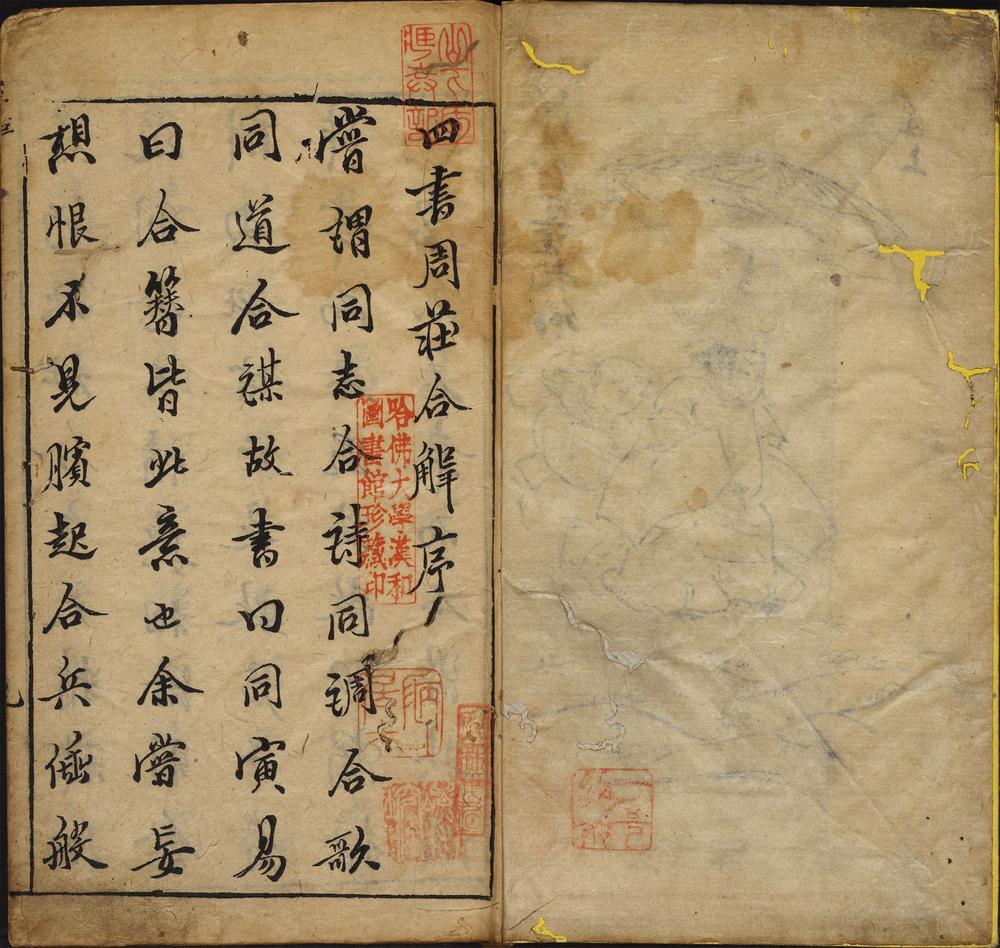 四書周莊合解序
嘗謂同志合詩同調合歌
同道合謀故書曰同寅易
曰合簪皆此意也余嘗妄
想恨不見臏起合兵倕般
哈佛大學漢和
圖書館珍藏印